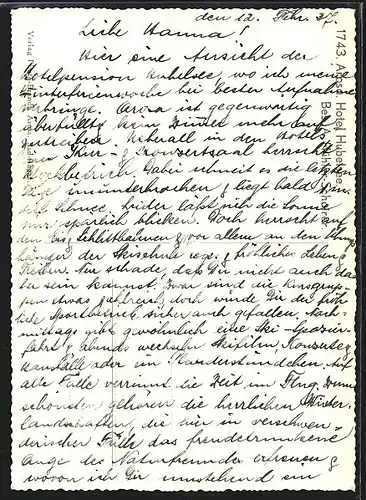 den 12. Febr. 37.
Liebe Hanna!
Hier eine Ansicht der
Hotelpension Hubelsee, wo ich meine
Winterferienwoche bei bester Aufnahme
verbringe. Arosa ist gegenwärtig
überfüllt, kein Zimmer mehr auf-
zutreiben. Überall in den Hotels,
im Kur- & Konzertsaal herrscht
Hochbetrieb. Dabei schneit es die letzten
Tage ununterbrochen & liegt bald 1 m
tief Schnee, leider läßt sich die Sonne
nur spärlich blicken. Doch herrscht auf
den Eis- Schlittbahnen & vor allem an den Übungs-
hängen der Skischule reges & fröhliches Leben &
Treiben. Nur schade, daß Du nicht auch da-
bei sein kannst. Zwar sind die Kursgrup-
pen etwas doch würde Dir der fröh-
liche Sportbetrieb sicher auch gefallen. Nach-
mittags gibt's gewöhnlich eine Ski-Spazier-
fahrt & abends wechseln Skifilm, Konzerte &
Hausbälle oder ein Plauderstündchen. Auf
alle Fälle verrinnt die Zeit im Flug. Zum
schönsten gehören die herrlichen Winter-
landschaften, die hier in verschwen-
derischer Fülle das freudetrunkene
Auge des Naturfreundes erfreuen &
wovon ich Dir umstehend ein
1743 Arosa, Hotel Hubelsee
Verlag